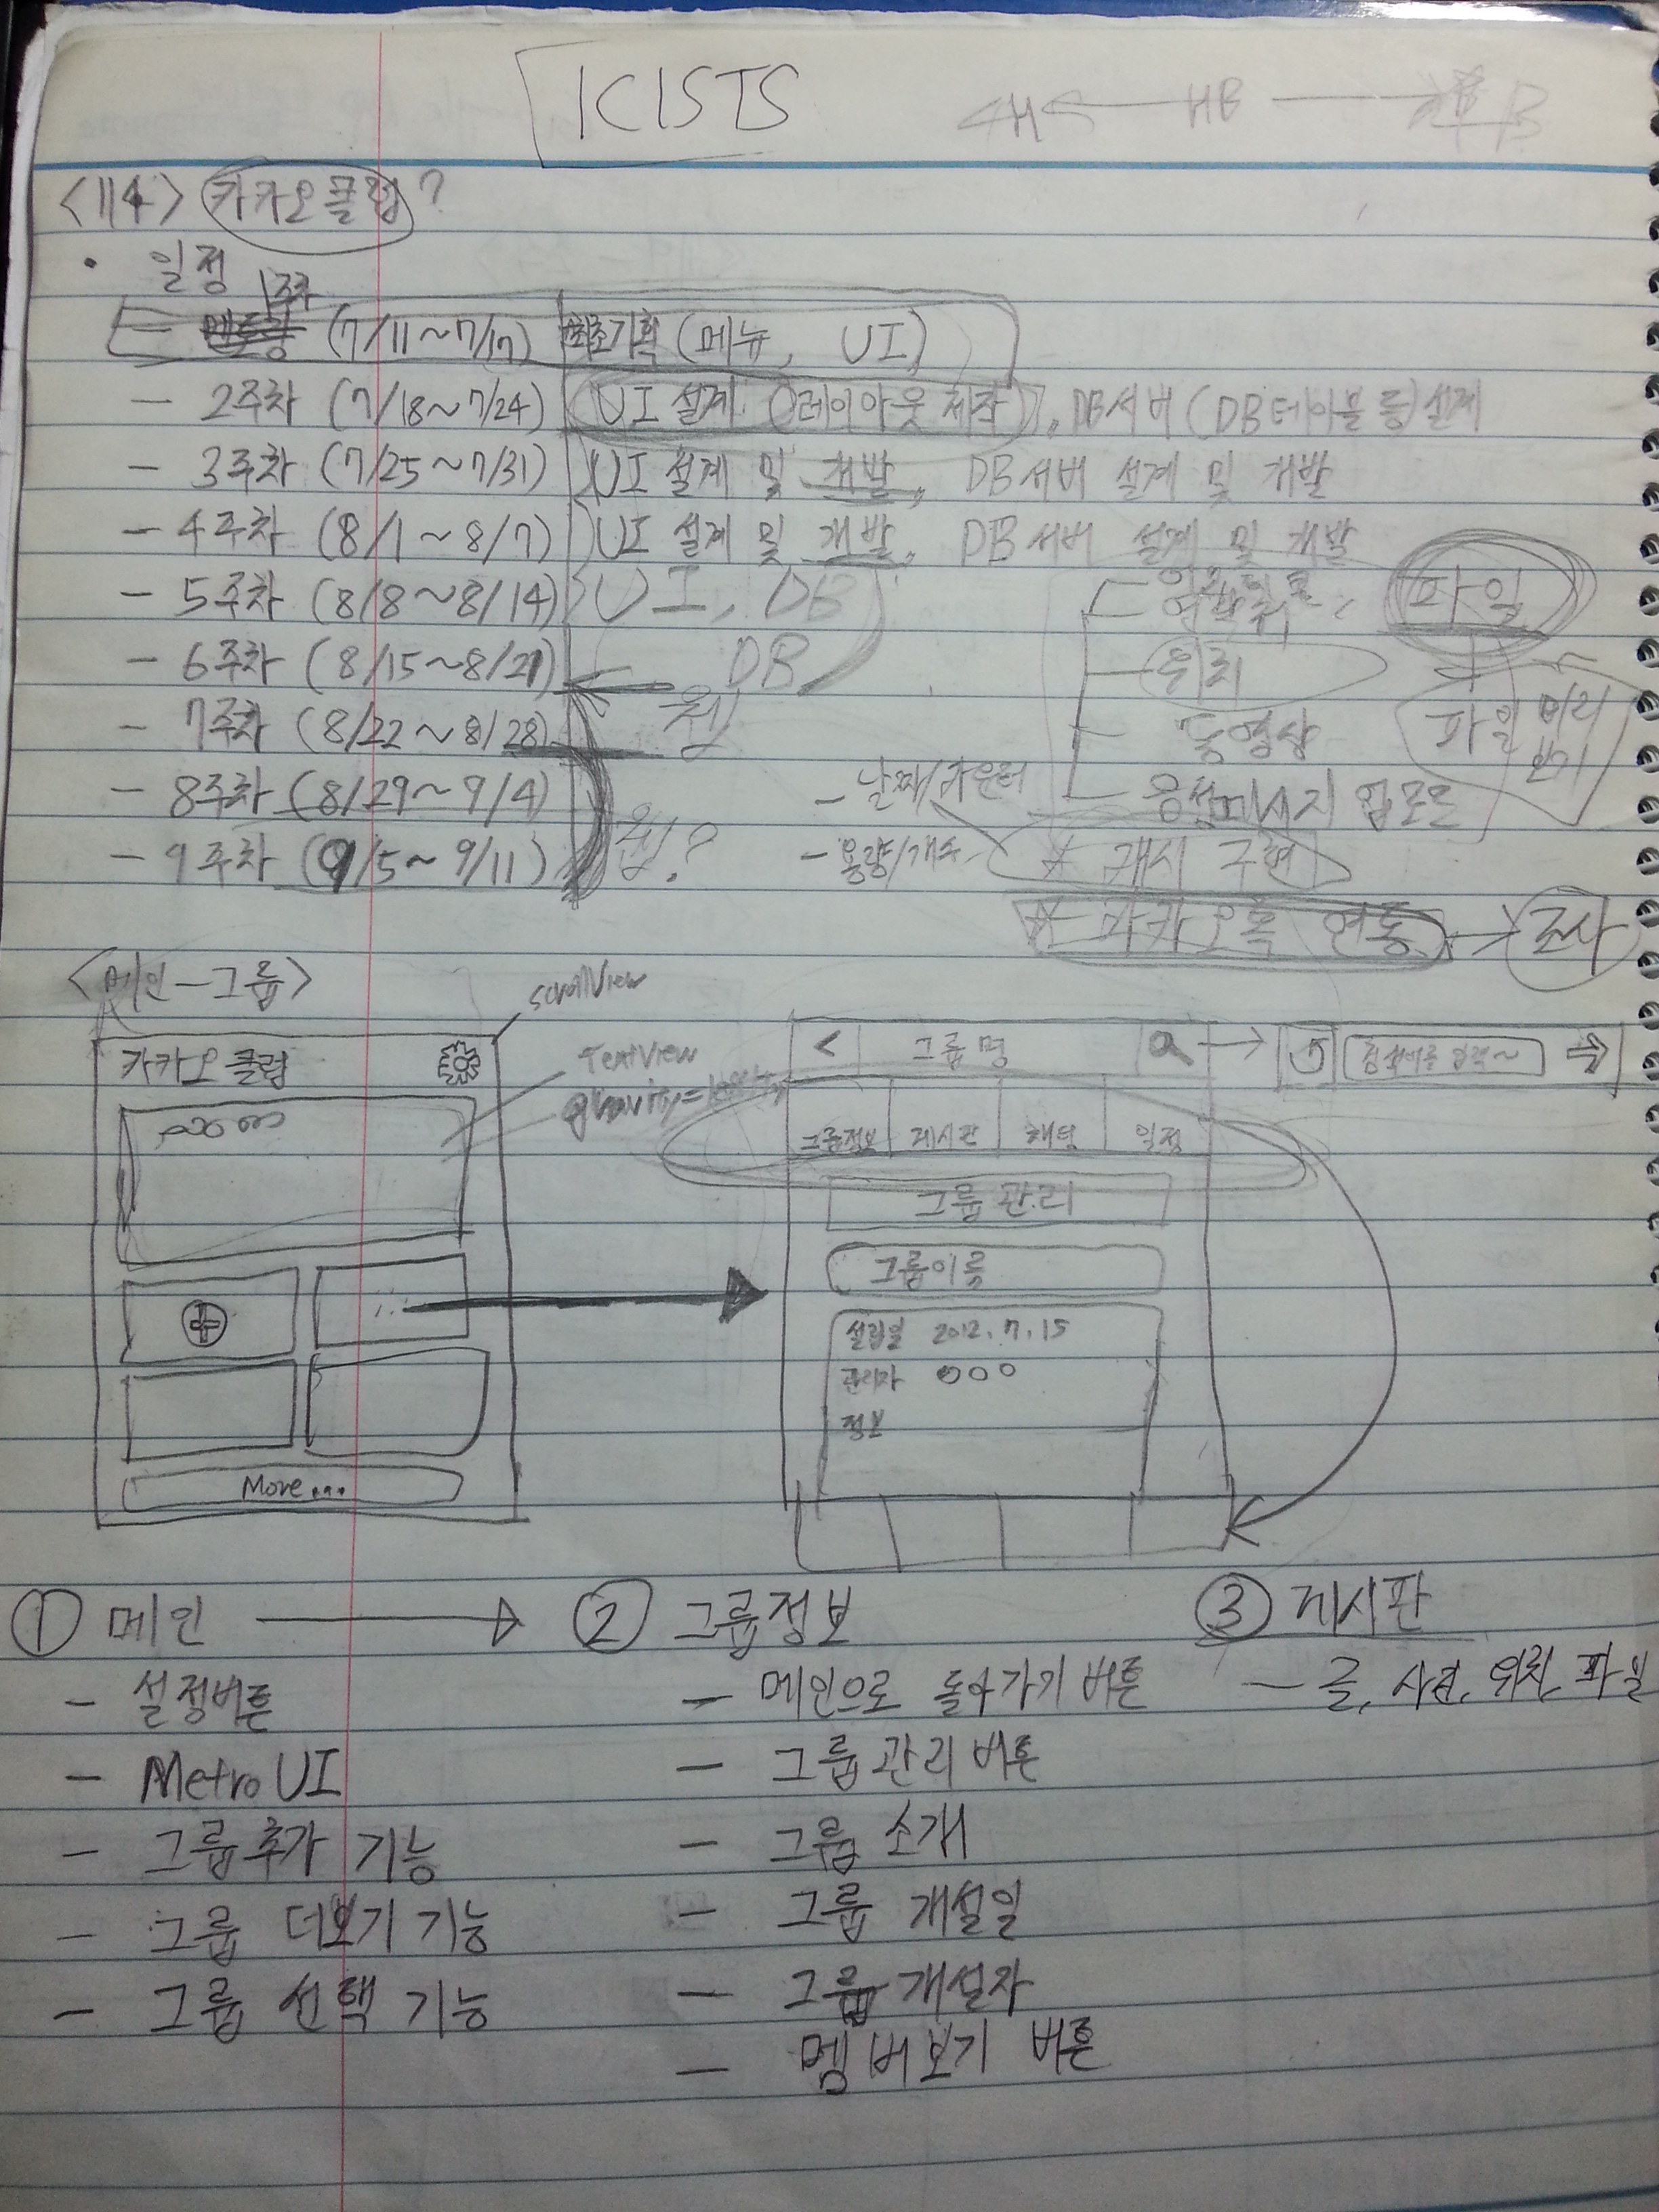 ICISTS
HB
<114> 카카오클럽?
• 일정
1주차
- (7/11~7/17) 최초기획 (메뉴, UI)
- 2주차 (7/18~7/24) UI 설계 (레이아웃 제작), DB서버 (DB테이블 등) 설계
- 3주차 (7/25~7/31) UI 설계 및 개발, DB서버 설계 및 개발
- 4주차 (8/1~8/7) UI 설계 및 개발, DB서버 설계 및 개발
- 5주차 (8/8~8/14) UI, DB
- 6주차 (8/15~8/21) DB
- 7주차 (8/22~8/28) 웹
- 8주차 (8/29~9/4)
- 9주차 (9/5~9/11) 웹?
파일
위치
동영상
파일 미리보기
음성메시지 업로드
- 날짜/카운터
- 용량/개수
* 캐시 구현
* 카카오톡 연동 → 조사
<메인-그룹>
scrollView
TextView
gravity=
카카오클럽
More...
< 그룹명
그룹정보 게시판 채팅 일정
그룹관리
그룹이름
설립일 2012.7.15
관리자 ○○○
정보
① 메인
- 설정버튼
- Metro UI
- 그룹추가 기능
- 그룹 더보기 기능
- 그룹 선택 기능
② 그룹정보
- 메인으로 돌아가기 버튼
- 그룹관리 버튼
- 그룹 소개
- 그룹 개설일
- 그룹 개설자
- 멤버보기 버튼
③ 게시판
- 글, 사진, 위치, 파일